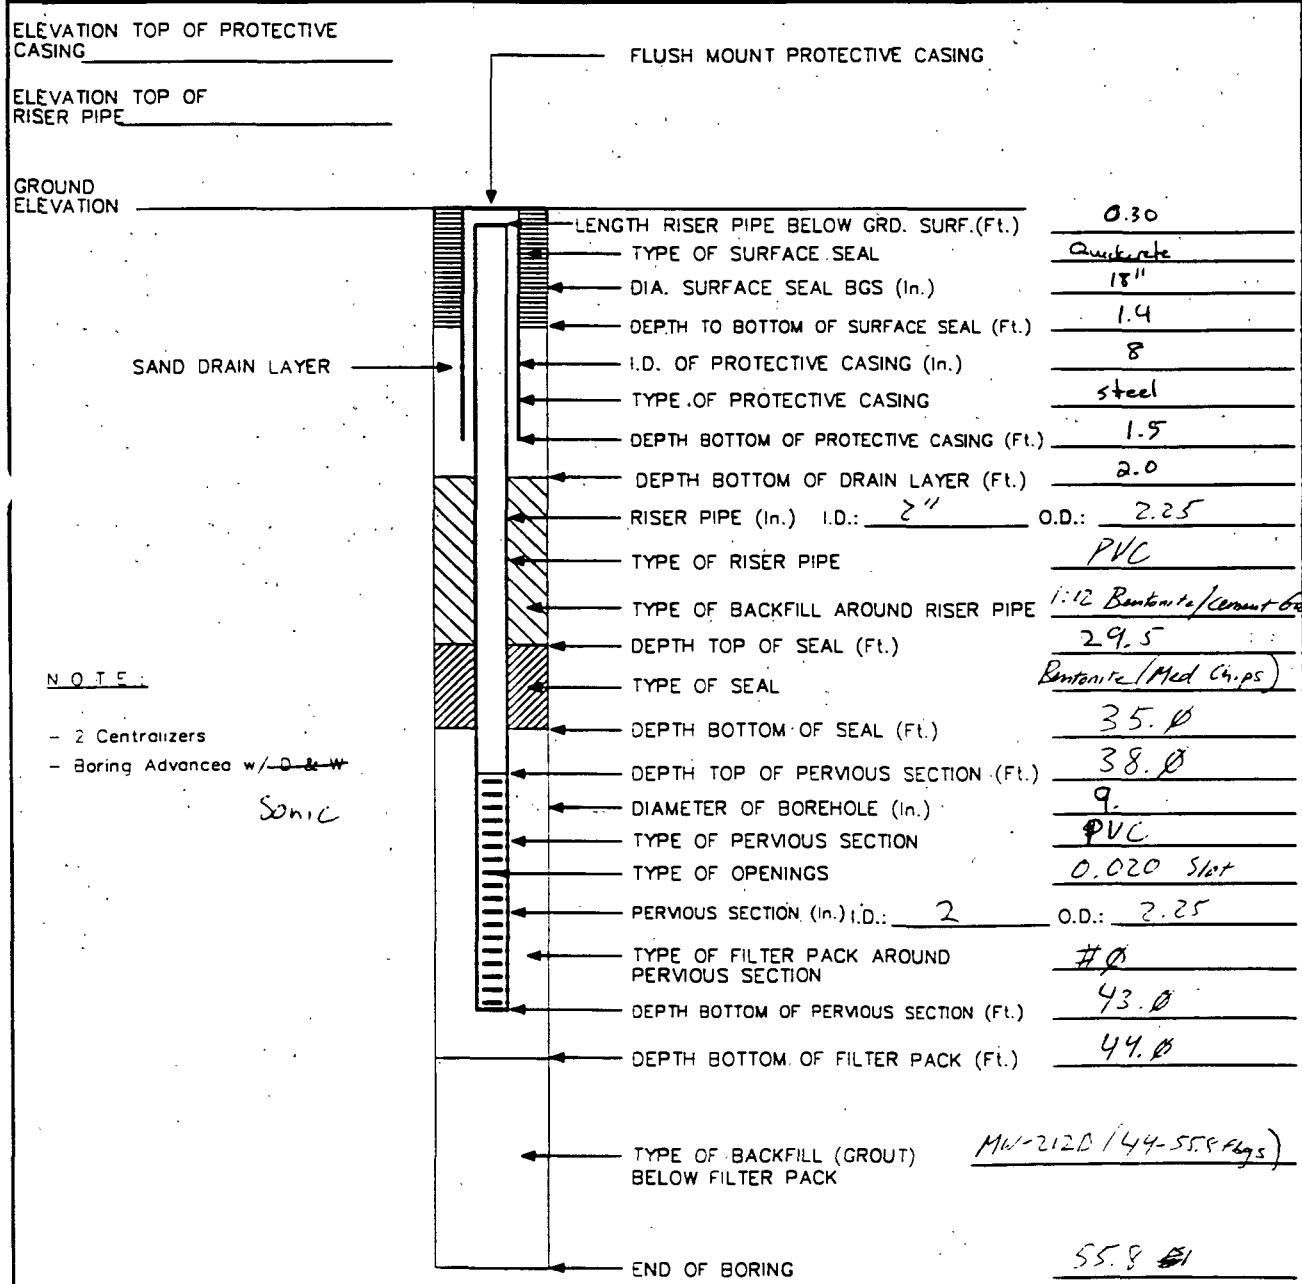 ELEVATION TOP OF PROTECTIVE
CASING
FLUSH MOUNT PROTECTIVE CASING
ELEVATION TOP OF
RISER PIPE
GROUND
ELEVATION
LENGTH RISER PIPE BELOW GRD. SURF.(Ft.) 0.30
TYPE OF SURFACE SEAL Quickrete
DIA. SURFACE SEAL BGS (In.) 18"
DEPTH TO BOTTOM OF SURFACE SEAL (Ft.) 1.4
SAND DRAIN LAYER
I.D. OF PROTECTIVE CASING (In.) 8
TYPE OF PROTECTIVE CASING steel
DEPTH BOTTOM OF PROTECTIVE CASING (Ft.) 1.5
DEPTH BOTTOM OF DRAIN LAYER (Ft.) 2.0
RISER PIPE (In.) I.D.: 2" O.D.: 2.25
TYPE OF RISER PIPE PVC
TYPE OF BACKFILL AROUND RISER PIPE 1:12 Bentonite/cement
DEPTH TOP OF SEAL (Ft.) 29.5
NOTE:
TYPE OF SEAL Bentonite (Med Chips)
- 2 Centralizers
DEPTH BOTTOM OF SEAL (Ft.) 35.0
- Boring Advanced w/ D & W
Sonic
DEPTH TOP OF PERVIOUS SECTION (Ft.) 38.0
DIAMETER OF BOREHOLE (In.) 9.
TYPE OF PERVIOUS SECTION PVC
TYPE OF OPENINGS 0.020 Slot
PERVIOUS SECTION (In.) I.D.: 2 O.D.: 2.25
TYPE OF FILTER PACK AROUND
PERVIOUS SECTION #0
DEPTH BOTTOM OF PERVIOUS SECTION (Ft.) 43.0
DEPTH BOTTOM OF FILTER PACK (Ft.) 44.0
TYPE OF BACKFILL (GROUT) MW-212D (44-55.8
BELOW FILTER PACK
END OF BORING 55.8